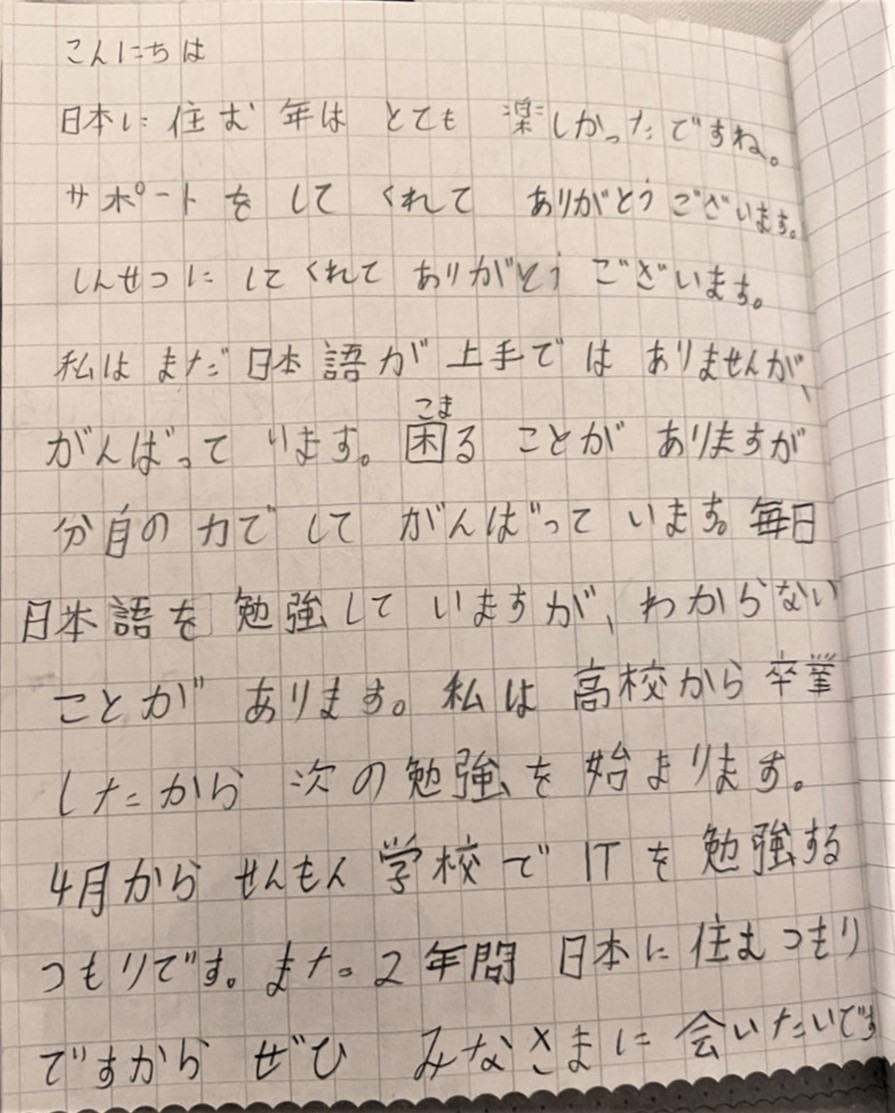 こんにちは
日本に 住む 年は とても 楽しかったですね。
サポートを して くれて ありがとう ございます。
しんせつに してくれて ありがとう ございます。
私は まだ 日本語が 上手では ありませんが、
こま
がんばって います。困る ことが ありますが
分自の 力で して がんばって います。毎日
日本語を 勉強して いますが、わからない
ことが あります。私は 高校から 卒業
したから 次の 勉強を 始まります。
4月から せんもん 学校で ITを 勉強する
つもりです。また 2年間 日本に 住むつもり
ですから ぜひ みなさまに 会いたいです